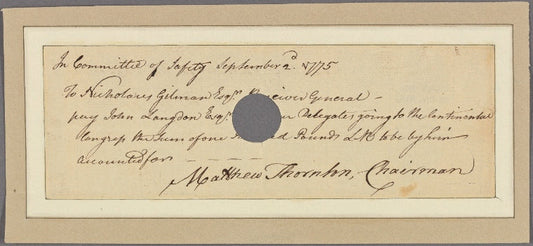 In Committee of Safety September 2d. 1775
To Nicholaus Gilman Esqr. Receiver General –
pay John Langdon Esqr. Delegates going to the Continental
Congress the Sum of one Pounds LM to be by him
accounted for –
Matthew Thornton, Chairman